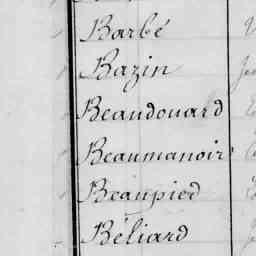 Barbé
Bazin
Beaudouard
Beaumanoir
Beaupied
Béliard